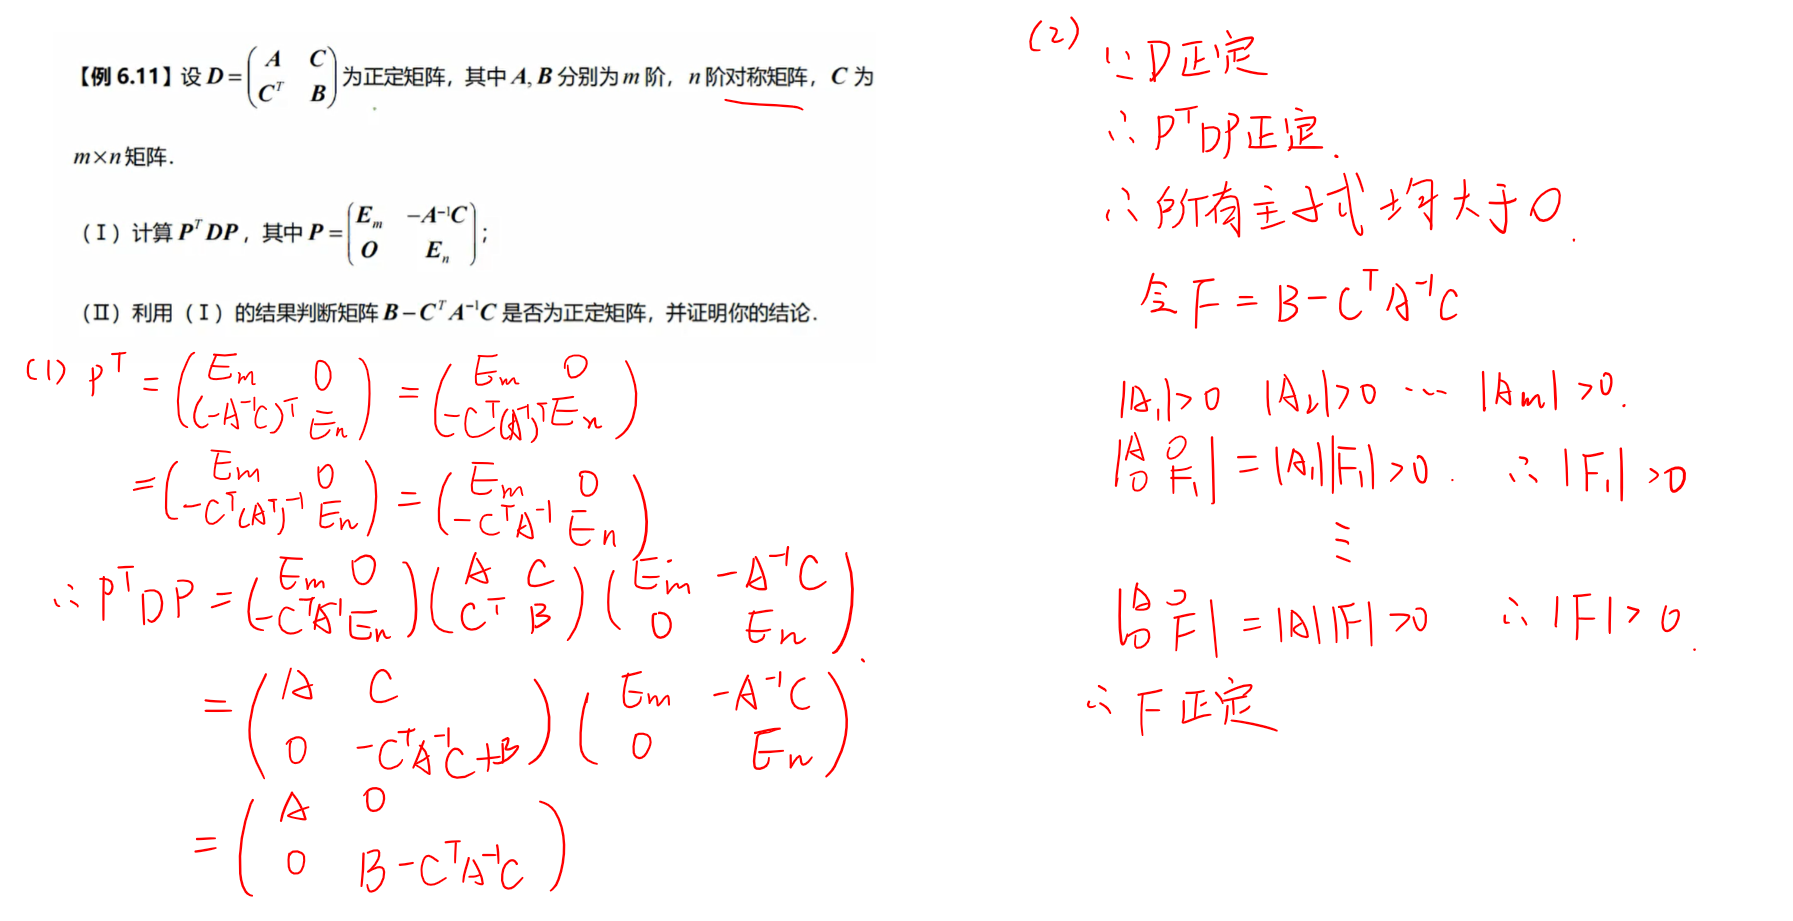 【例 6.11】设 D = ( A C ; Cᵀ B ) 为正定矩阵，其中 A, B 分别为 m 阶，n 阶对称矩阵，C 为
m×n 矩阵.
（Ⅰ）计算 PᵀDP，其中 P = ( Eₘ −A⁻¹C ; O Eₙ )；
（Ⅱ）利用（Ⅰ）的结果判断矩阵 B − CᵀA⁻¹C 是否为正定矩阵，并证明你的结论.
(1) Pᵀ = ( Eₘ 0 ; (−A⁻¹C)ᵀ Eₙ ) = ( Eₘ 0 ; −Cᵀ(A⁻¹)ᵀ Eₙ )
= ( Eₘ 0 ; −Cᵀ(Aᵀ)⁻¹ Eₙ ) = ( Eₘ 0 ; −CᵀA⁻¹ Eₙ )
∴ PᵀDP = ( Eₘ 0 ; −CᵀA⁻¹ Eₙ ) ( A C ; Cᵀ B ) ( Eₘ −A⁻¹C ; 0 Eₙ ).
= ( A C ; 0 −CᵀA⁻¹C+B ) ( Eₘ −A⁻¹C ; 0 Eₙ )
= ( A 0 ; 0 B−CᵀA⁻¹C )
(2) ∵ D正定
∴ PᵀDP正定.
∴ 所有主子式均大于0.
令 F = B−CᵀA⁻¹C
|A₁|>0 |A₂|>0 ⋯ |Aₘ|>0.
| A 0 ; 0 F₁ | = |A₁||F₁|>0. ∴ |F₁|>0
⋮
| A 0 ; 0 F | = |A||F|>0 ∴ |F|>0.
∴ F正定